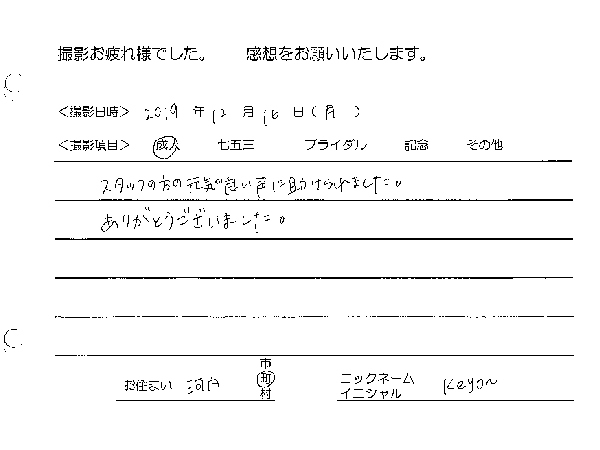 撮影お疲れ様でした。 感想をお願いいたします。
<撮影日時> 2019 年 12 月 16 日 (月)
<撮影項目> 成人 七五三 ブライダル 記念 その他
スタッフの方の元気の良い声に助けられました。
ありがとうございました。
お住まい 河内 市 町 村
ニックネーム イニシャル Keyon